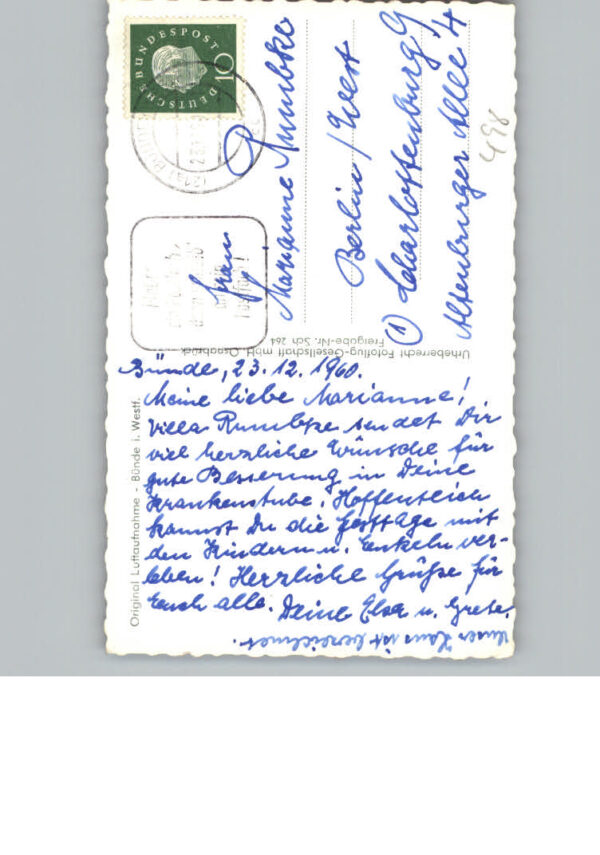 DEUTSCHE BUNDESPOST
10
Frau
Marianne Rumbke
Berlin/West
(1) Charlottenburg 9,
Altenburger Allee 4
498
Urheberrecht Fotoflug-Gesellschaft mbH. Osnabrück
Freigabe-Nr. Sch 264
Original Luftaufnahme - Bünde i. Westf.
Bünde, 23.12.1960.
Meine liebe Marianne!
Villa Rumbke sendet Dir
viel herzliche Wünsche für
gute Besserung in Deine
Krankenstube. Hoffentlich
kannst Du die Festtage mit
den Kindern u. Enkeln ver-
leben! Herzliche Grüße für
Euch alle. Deine Elsa u. Grete.
Unser Haus ist bezeichnet.